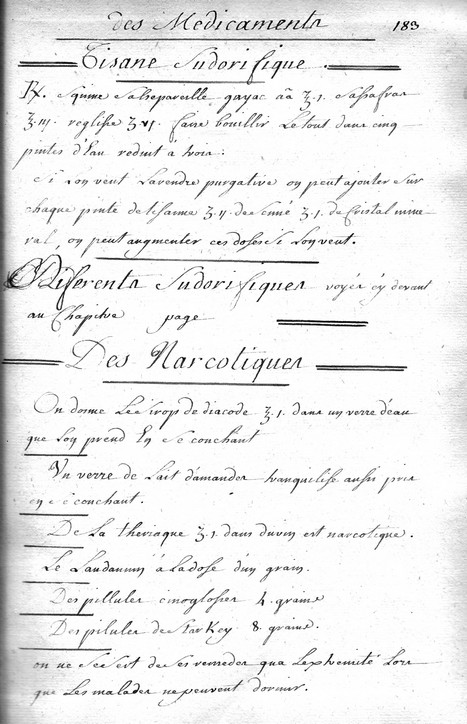 des Medicaments 183
Tisane Sudorifique.
℞. Squine Salsepareille gayac aã ℥.1. Sassafras
℥.iii. reglisse ʒvi. faire bouillir Le tout dans cinq
pintes d'Eau reduit à trois:
Si Lon veut La rendre purgative on peut ajouter Sur
chaque pinte de tisanne ʒ.ii. de Senné ʒ.1. de Cristal mine-
ral, on peut augmenter ces doses Si Lon veut.
Diferents Sudorifiques voyés cy devant
au Chapitre page
Des Narcotiques
On donne Le Sirop de diacode ℥.1. dans un verre d'eau
que Lon prend En Se couchant
Un verre de Lait d'amandes tranquilise aussi pris
en Se couchant.
De La theriaque ʒ.1. dans du vin est narcotique.
Le Laudanum à La dose d'un grain.
Des pillules cinoglosses 4. grains
Des pilules de Starkey 8. grains.
on ne Se Sert de Ses remedes qua Lextremité Lors
que Les malades ne peuvent dormir.